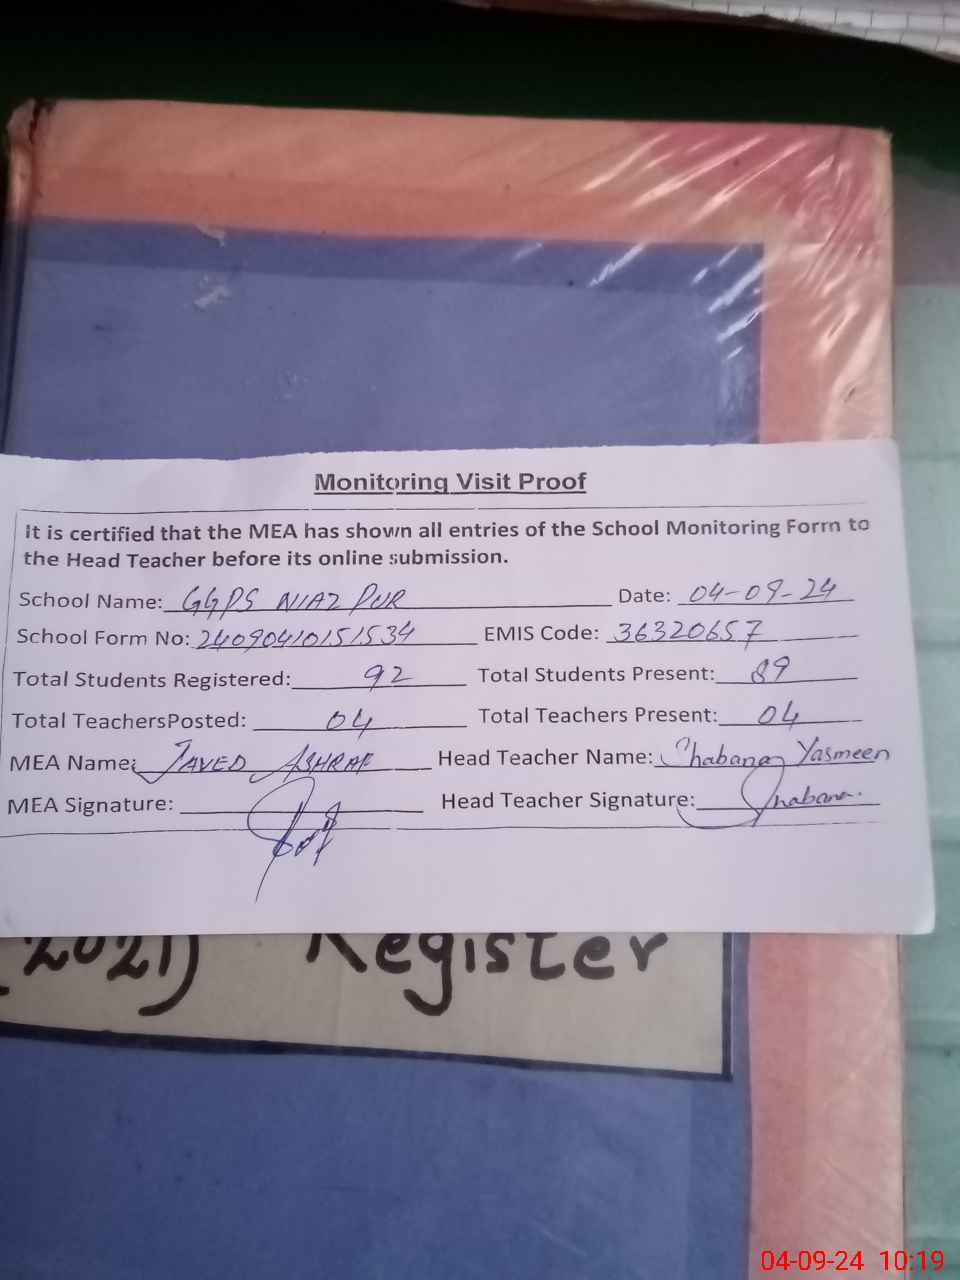 Monitoring Visit Proof
It is certified that the MEA has shown all entries of the School Monitoring Form to
the Head Teacher before its online submission.
School Name: GGPS NIAZ PUR Date: 04-09-24
School Form No: 24090410151534 EMIS Code: 36320657
Total Students Registered: 92 Total Students Present: 89
Total TeachersPosted: 04 Total Teachers Present: 04
MEA Name: JAVED ASHRAF Head Teacher Name: Shabana Yasmeen
MEA Signature: Head Teacher Signature: Shabana.
(2021) Register
04-09-24 10:19